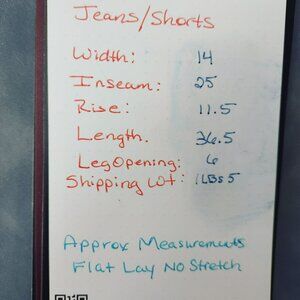 Jeans/Shorts
Width: 14
Inseam: 25
Rise: 11.5
Length. 36.5
Leg Opening: 6
Shipping Wt: 1 LBS 5
Approx Measurements
Flat Lay No Stretch